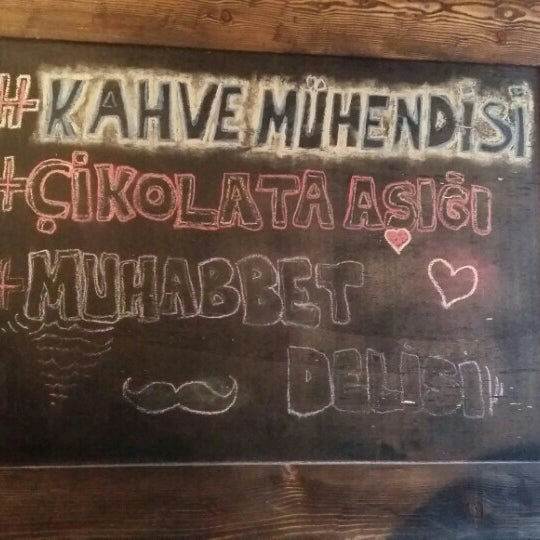 #KAHVE MÜHENDİSİ
#ÇİKOLATA AŞIĞI
#MUHABBET
DELİSİ